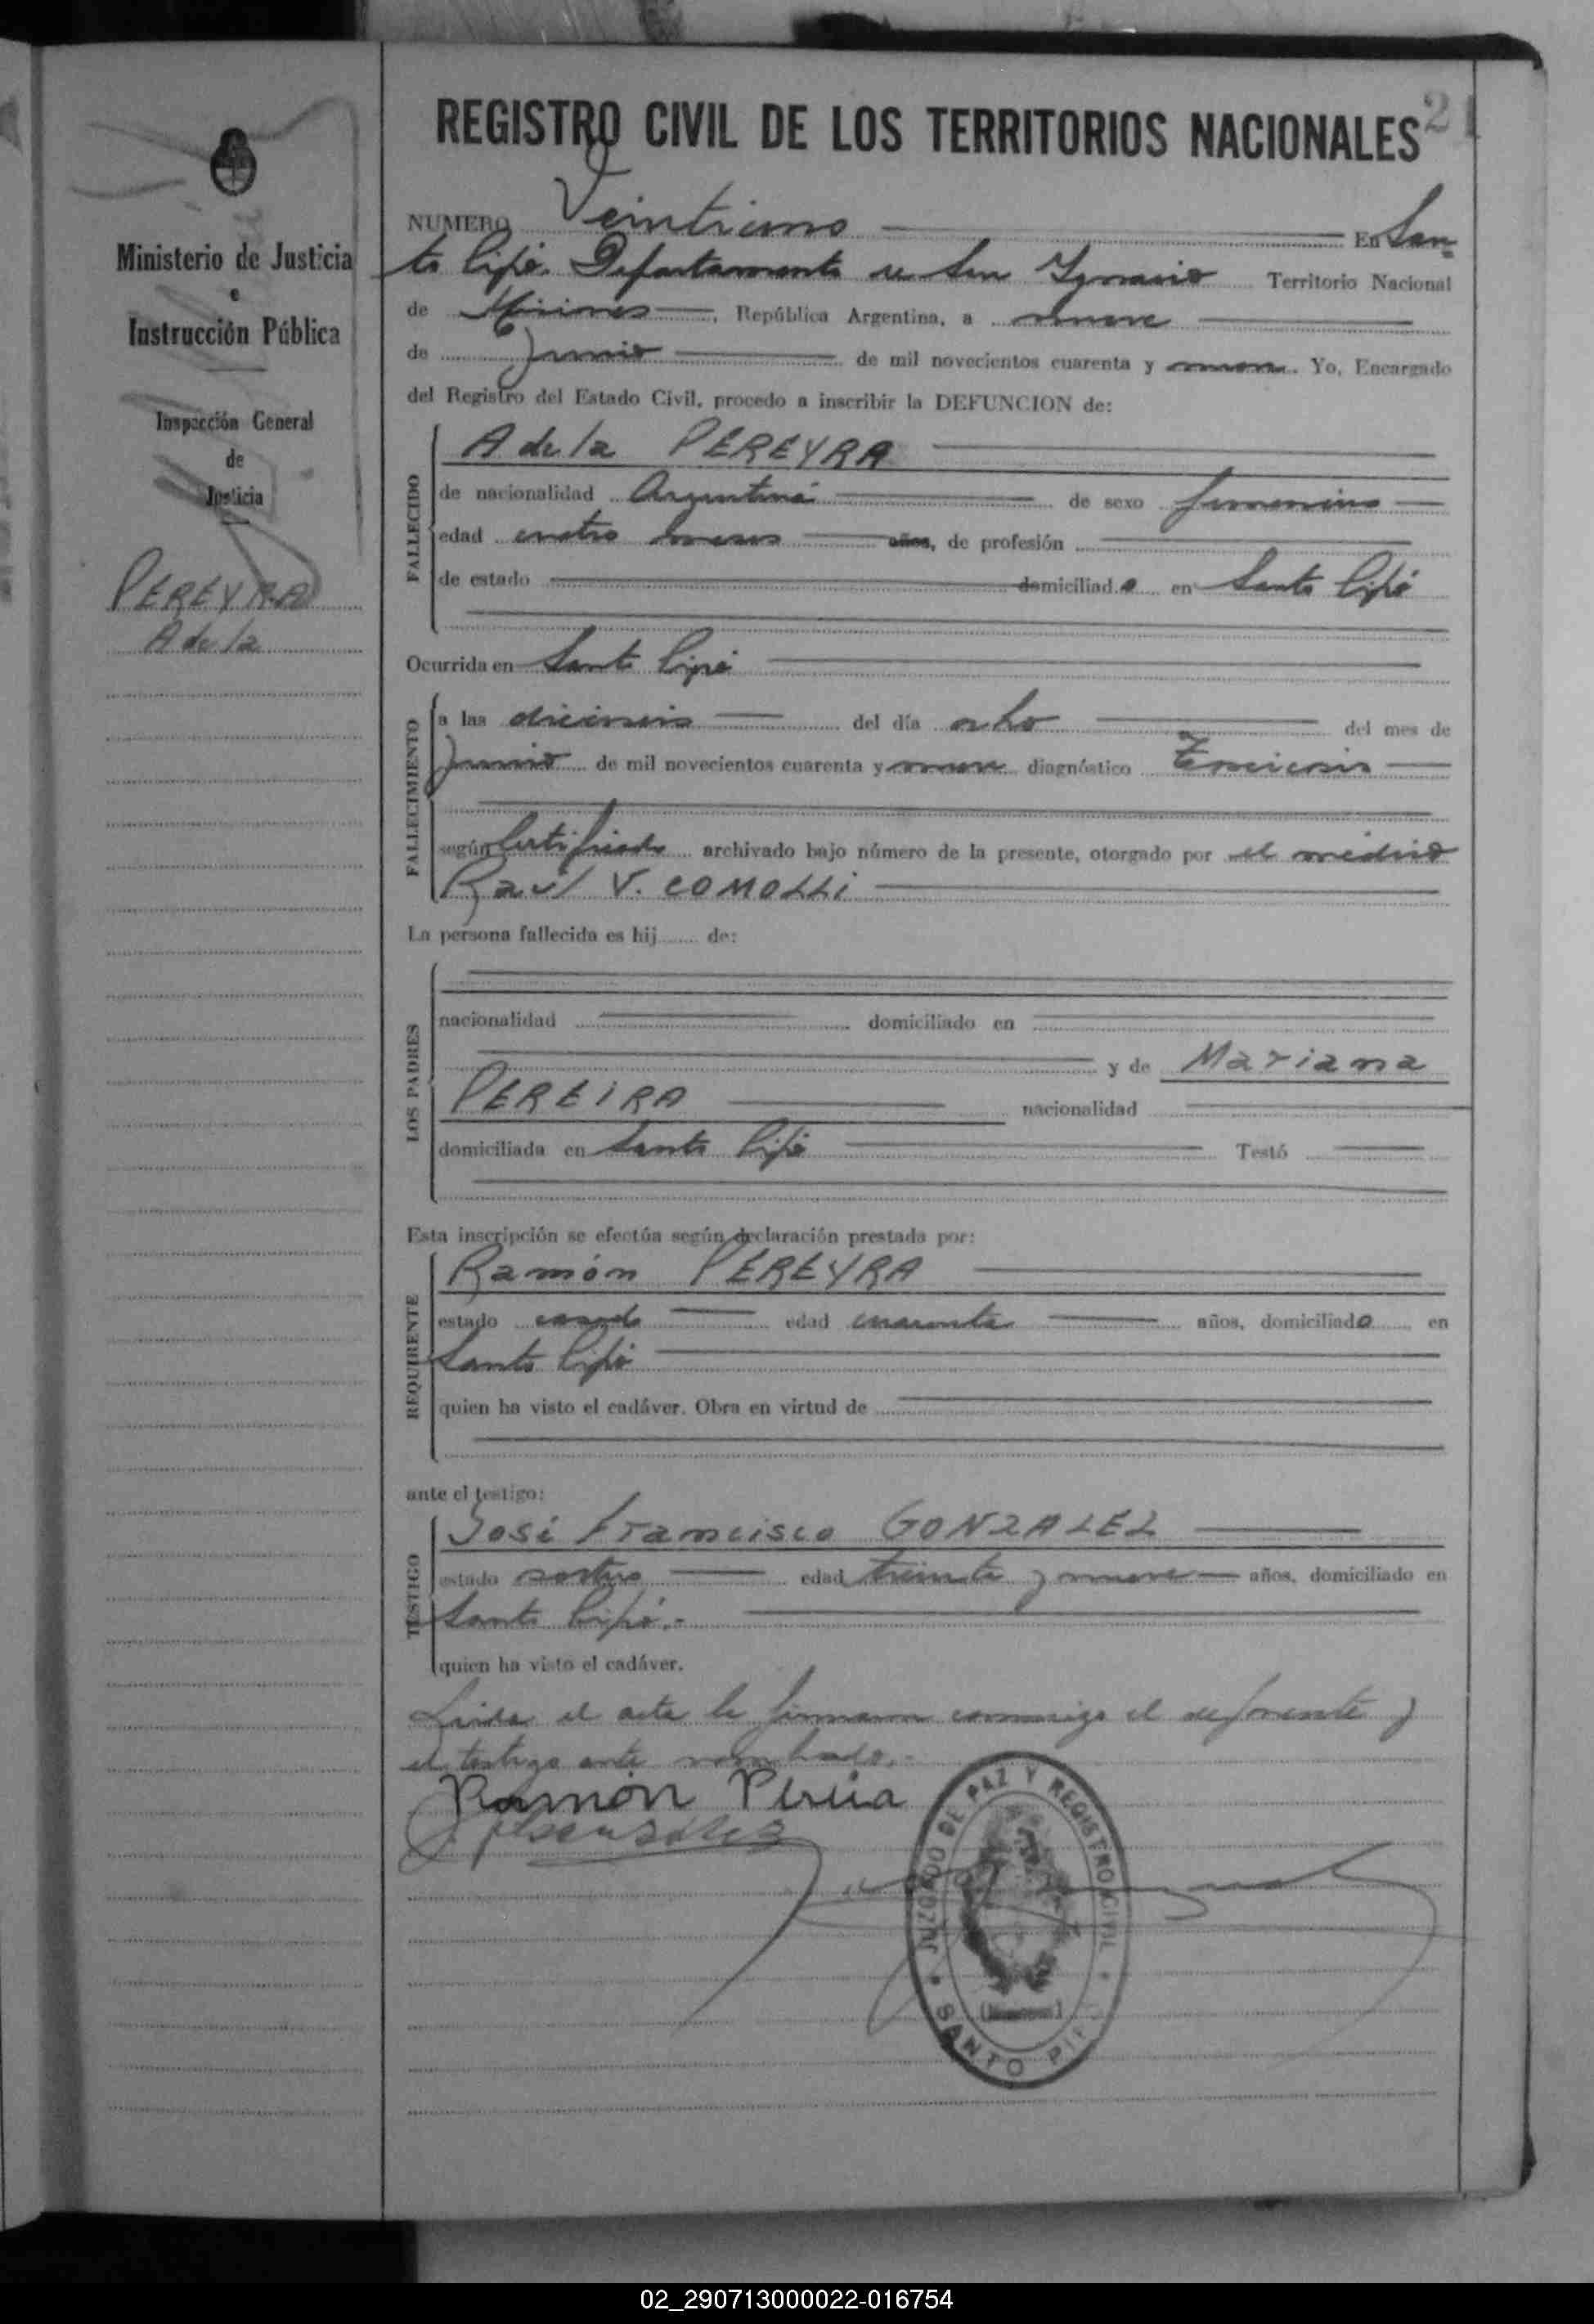 21
REGISTRO CIVIL DE LOS TERRITORIOS NACIONALES
Ministerio de Justicia
e
Instrucción Pública
Inspección General
de
Justicia
PEREYRA
Adela
NUMERO Veintiuno En San-
to Pipó Departamento de San Ignacio Territorio Nacional
de Misiones, República Argentina, a nueve
de Junio de mil novecientos cuarenta y nueve. Yo, Encargado
del Registro del Estado Civil, procedo a inscribir la DEFUNCION de:
FALLECIDO
Adela PEREYRA
de nacionalidad Argentina de sexo femenino
edad cuatro meses años, de profesión
de estado domiciliada en Santo Pipó
Ocurrida en Santo Pipó
FALLECIMIENTO
a las dieciseis del día ocho del mes de
Junio de mil novecientos cuarenta y nueve diagnóstico Toxicosis
según Certificado archivado bajo número de la presente, otorgado por el médico
Raúl V. COMOLLI
La persona fallecida es hij de:
LOS PADRES
nacionalidad domiciliado en
y de Mariana
PEREIRA nacionalidad
domiciliada en Santo Pipó Testó
Esta inscripción se efectúa según declaración prestada por:
REQUIRENTE
Ramón PEREYRA
estado casado edad cuarenta años, domiciliado en
Santo Pipó
quien ha visto el cadáver. Obra en virtud de
ante el testigo:
TESTIGO
José Francisco GONZALEZ
estado soltero edad treinta y nueve años, domiciliado en
Santo Pipó.-
quien ha visto el cadáver.
Leída el acta la firmaron conmigo el deponente y
el testigo ante nombrado.-
Ramón Pereira
JFGonzález
JUZGADO DE PAZ Y REGISTRO CIVIL
(Misiones)
SANTO PIPO
02_290713000022-016754